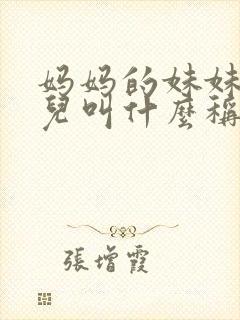 妈妈的妹妹
兒叫什麼稱
張增霞